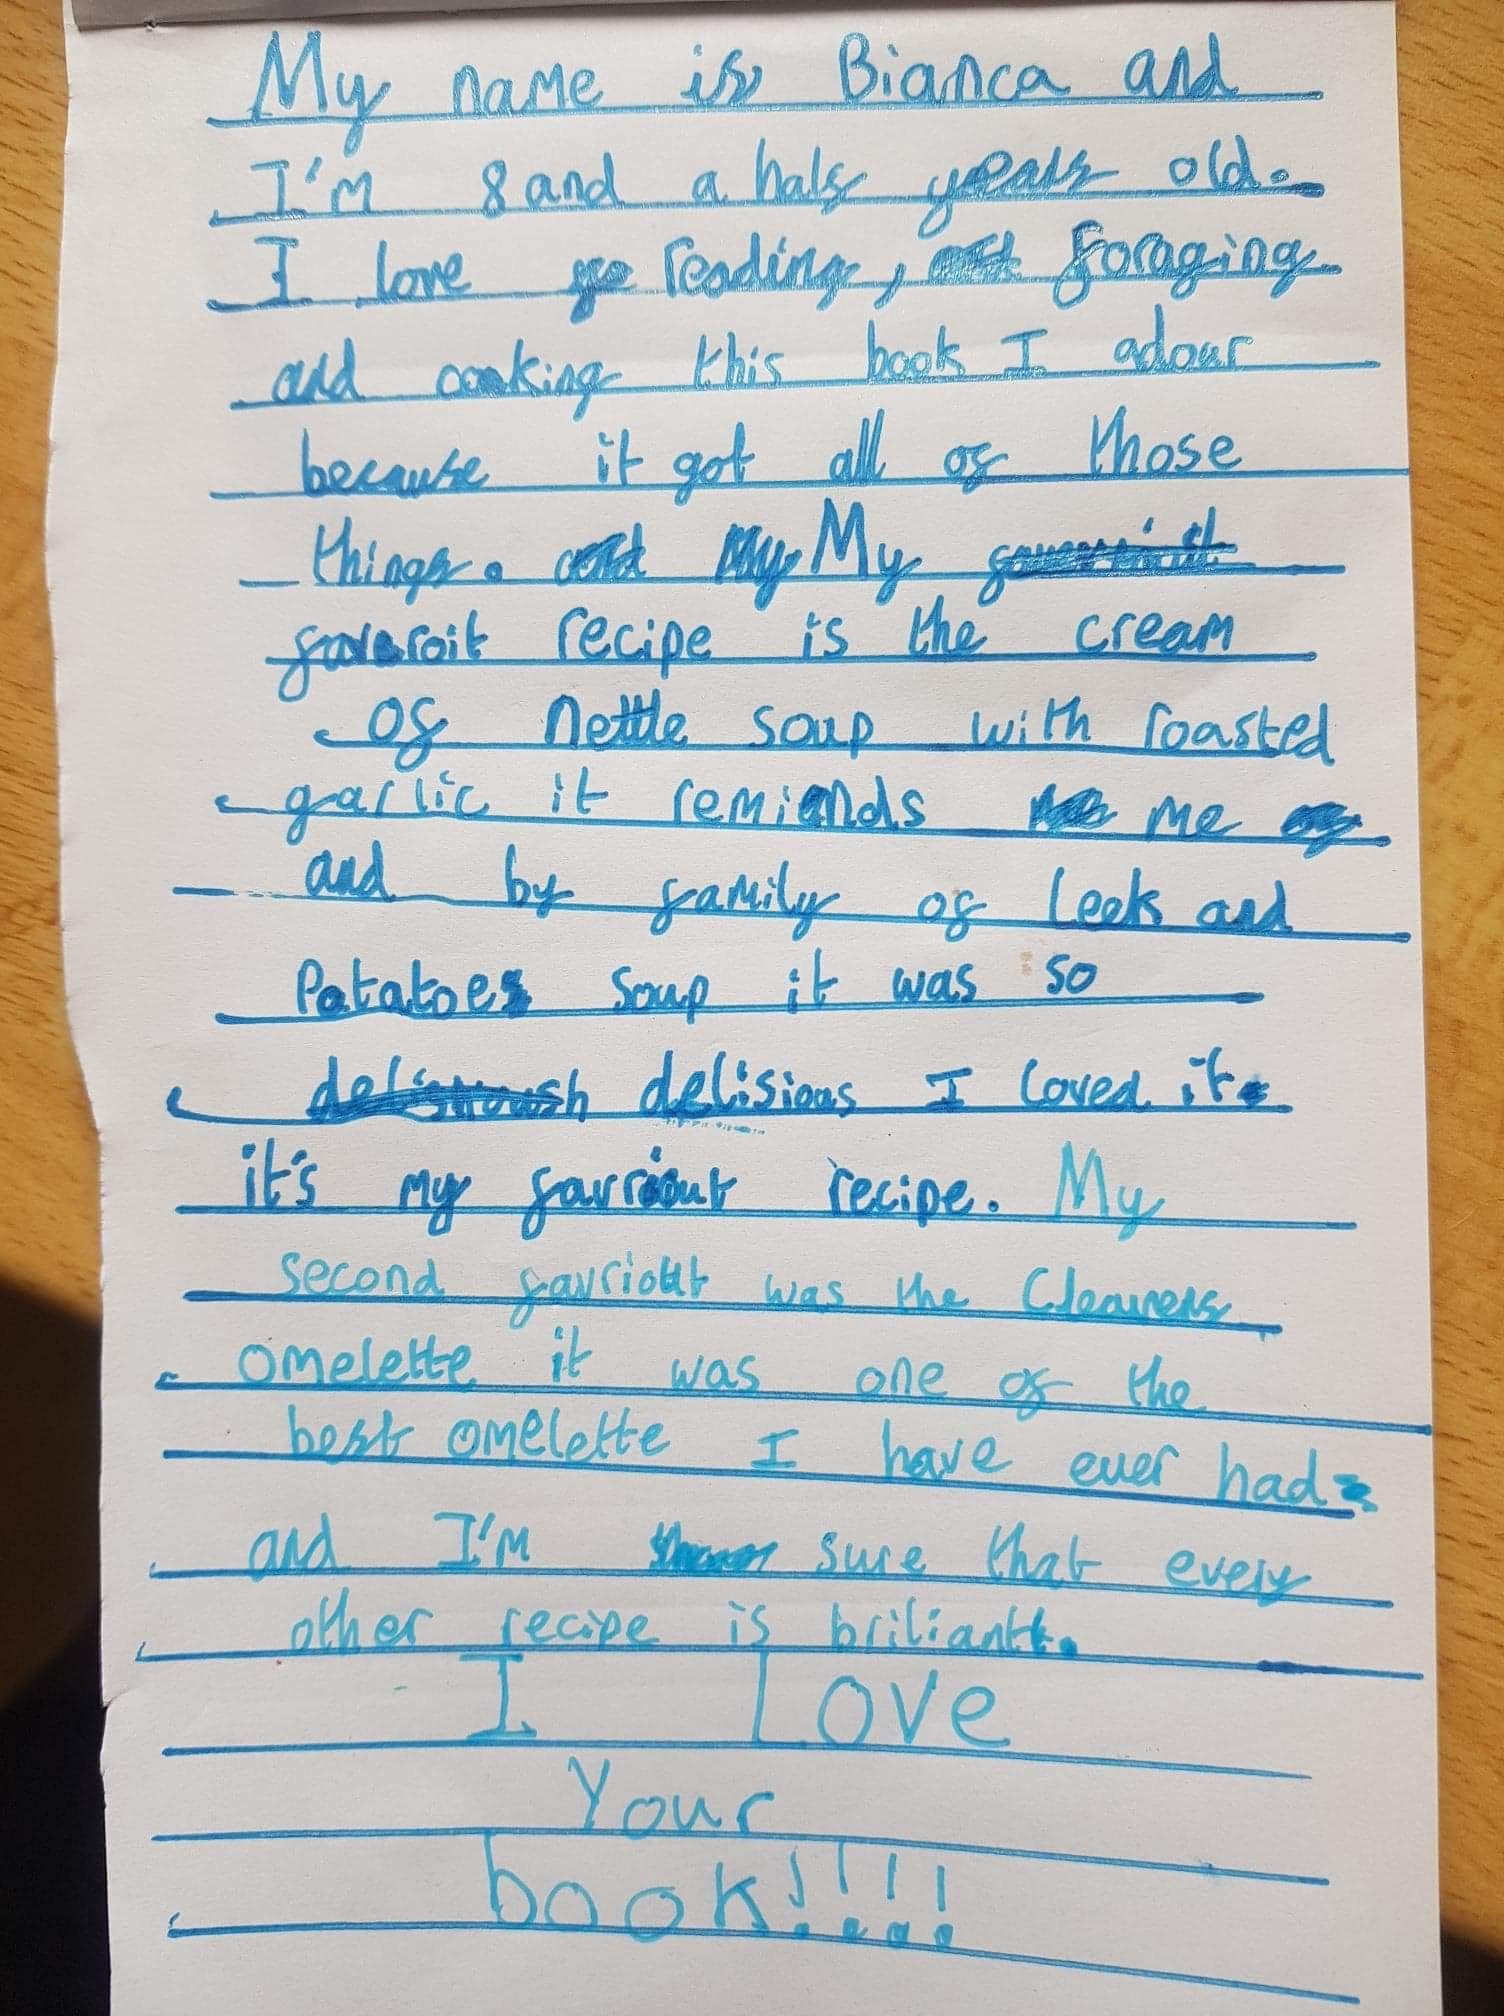 My name is Bianca and
I'm 8 and a half years old.
I love reading, foraging
and cooking this book I adour
because it got all of those
things. My
faveroit recipe is the cream
of nettle soup with roasted
garlic it reminds me
and by family of leek and
Potatoes soup it was so
delisious I loved it.
it's my favriout recipe. My
second favriout was the Cleavers
omelette it was one of the
best omelette I have ever had
and I'm sure that every
other recipe is briliant.
I Love
Your
book!!!!